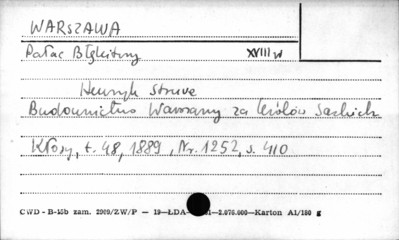 WARSZAWA
Pałac Błękitny XVIII w
Henryk Struve
Budownictwo Warszawy za królów Saskich
Kłosy, t. 48, 1889, Nr. 1252, s. 410
CWD - B-15b zam. 2909/ZW/P — 19—ŁDA- 81—2.076.000—Karton A1/180 g